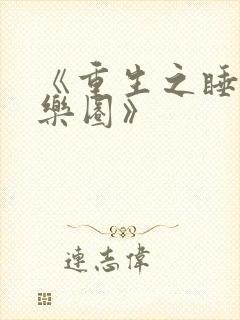 《重生之睡
樂園》
連志偉